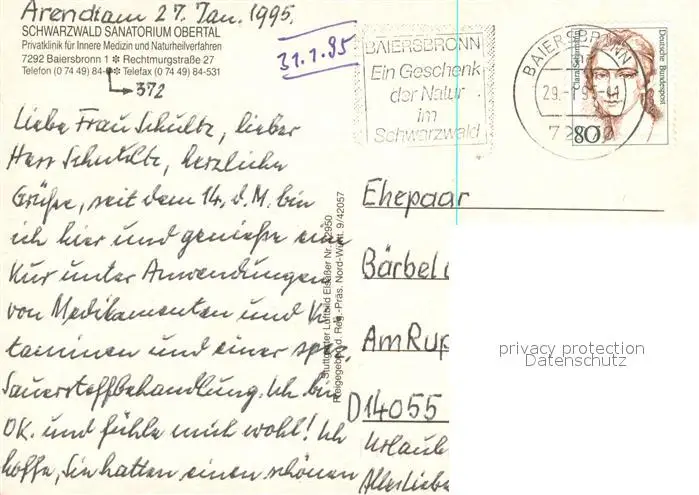 Arendiam 27. Jan. 1995.
SCHWARZWALD SANATORIUM OBERTAL
Privatklinik für Innere Medizin und Naturheilverfahren
7292 Baiersbronn 1 ✻ Rechtmurgstraße 27
Telefon (0 74 49) 84- ✻ Telefax (0 74 49) 84-531
372
31.1.95
BAIERSBRONN
Ein Geschenk
der Natur
im
Schwarzwald
BAIERSBRONN
29.-1.95-
Deutsche Bundespost
80
Liebe Frau Schultz, lieber
Herr Schultz, herzliche
Grüße, seit dem 14. d. M. bin
ich hier und genieße eine
Kur unter Anwendungen
von Medikamenten und Vi
taminen und einer spez.
Sauerstoffbehandlung. Ich bin
OK. und fühle mich wohl! Ich
hoffe, Sie hatten einen schönen
Urlaub
Allerliebs
Stuttgarter Luftbild Elsäßer Nr. 2950
Freigegeben d. Reg.-Präs. Nord-Württ. 9/42057
Ehepaar
Bärbel
Am Rup
D14055
privacy protection
Datenschutz